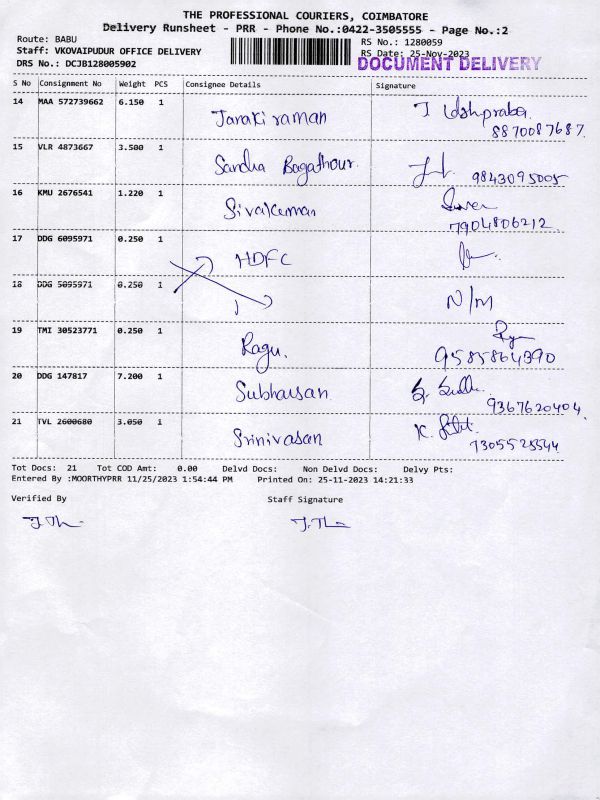 THE PROFESSIONAL COURIERS, COIMBATORE
Delivery Runsheet - PRR - Phone No.:0422-3505555 - Page No.:2
Route: BABU
RS No.: 1280059
Staff: VKOVAIPUDUR OFFICE DELIVERY
RS Date: 25-Nov-2023
DRS No.: DCJB128005902
DOCUMENT DELIVERY
S No Consignment No Weight PCS Consignee Details Signature
14 MAA 572739662 6.150 1 Janakiraman
8870087687.
15 VLR 4873667 3.500 1 9843095005
16 KMU 2676541 1.220 1 Sivakumar
7904806212
17 DDG 6095971 0.250 1 HDFC
18 DDG 5095971 0.250 1 N/M
19 TMI 30523771 0.250 1 Ragu.
9585864390
20 DDG 147817 7.200 1
9367620404
21 TVL 2600680 3.050 1 Srinivasan
Tot Docs: 21 Tot COD Amt: 0.00 Delvd Docs: Non Delvd Docs: Delvy Pts:
Entered By :MOORTHYPRR 11/25/2023 1:54:44 PM Printed On: 25-11-2023 14:21:33
Verified By Staff Signature